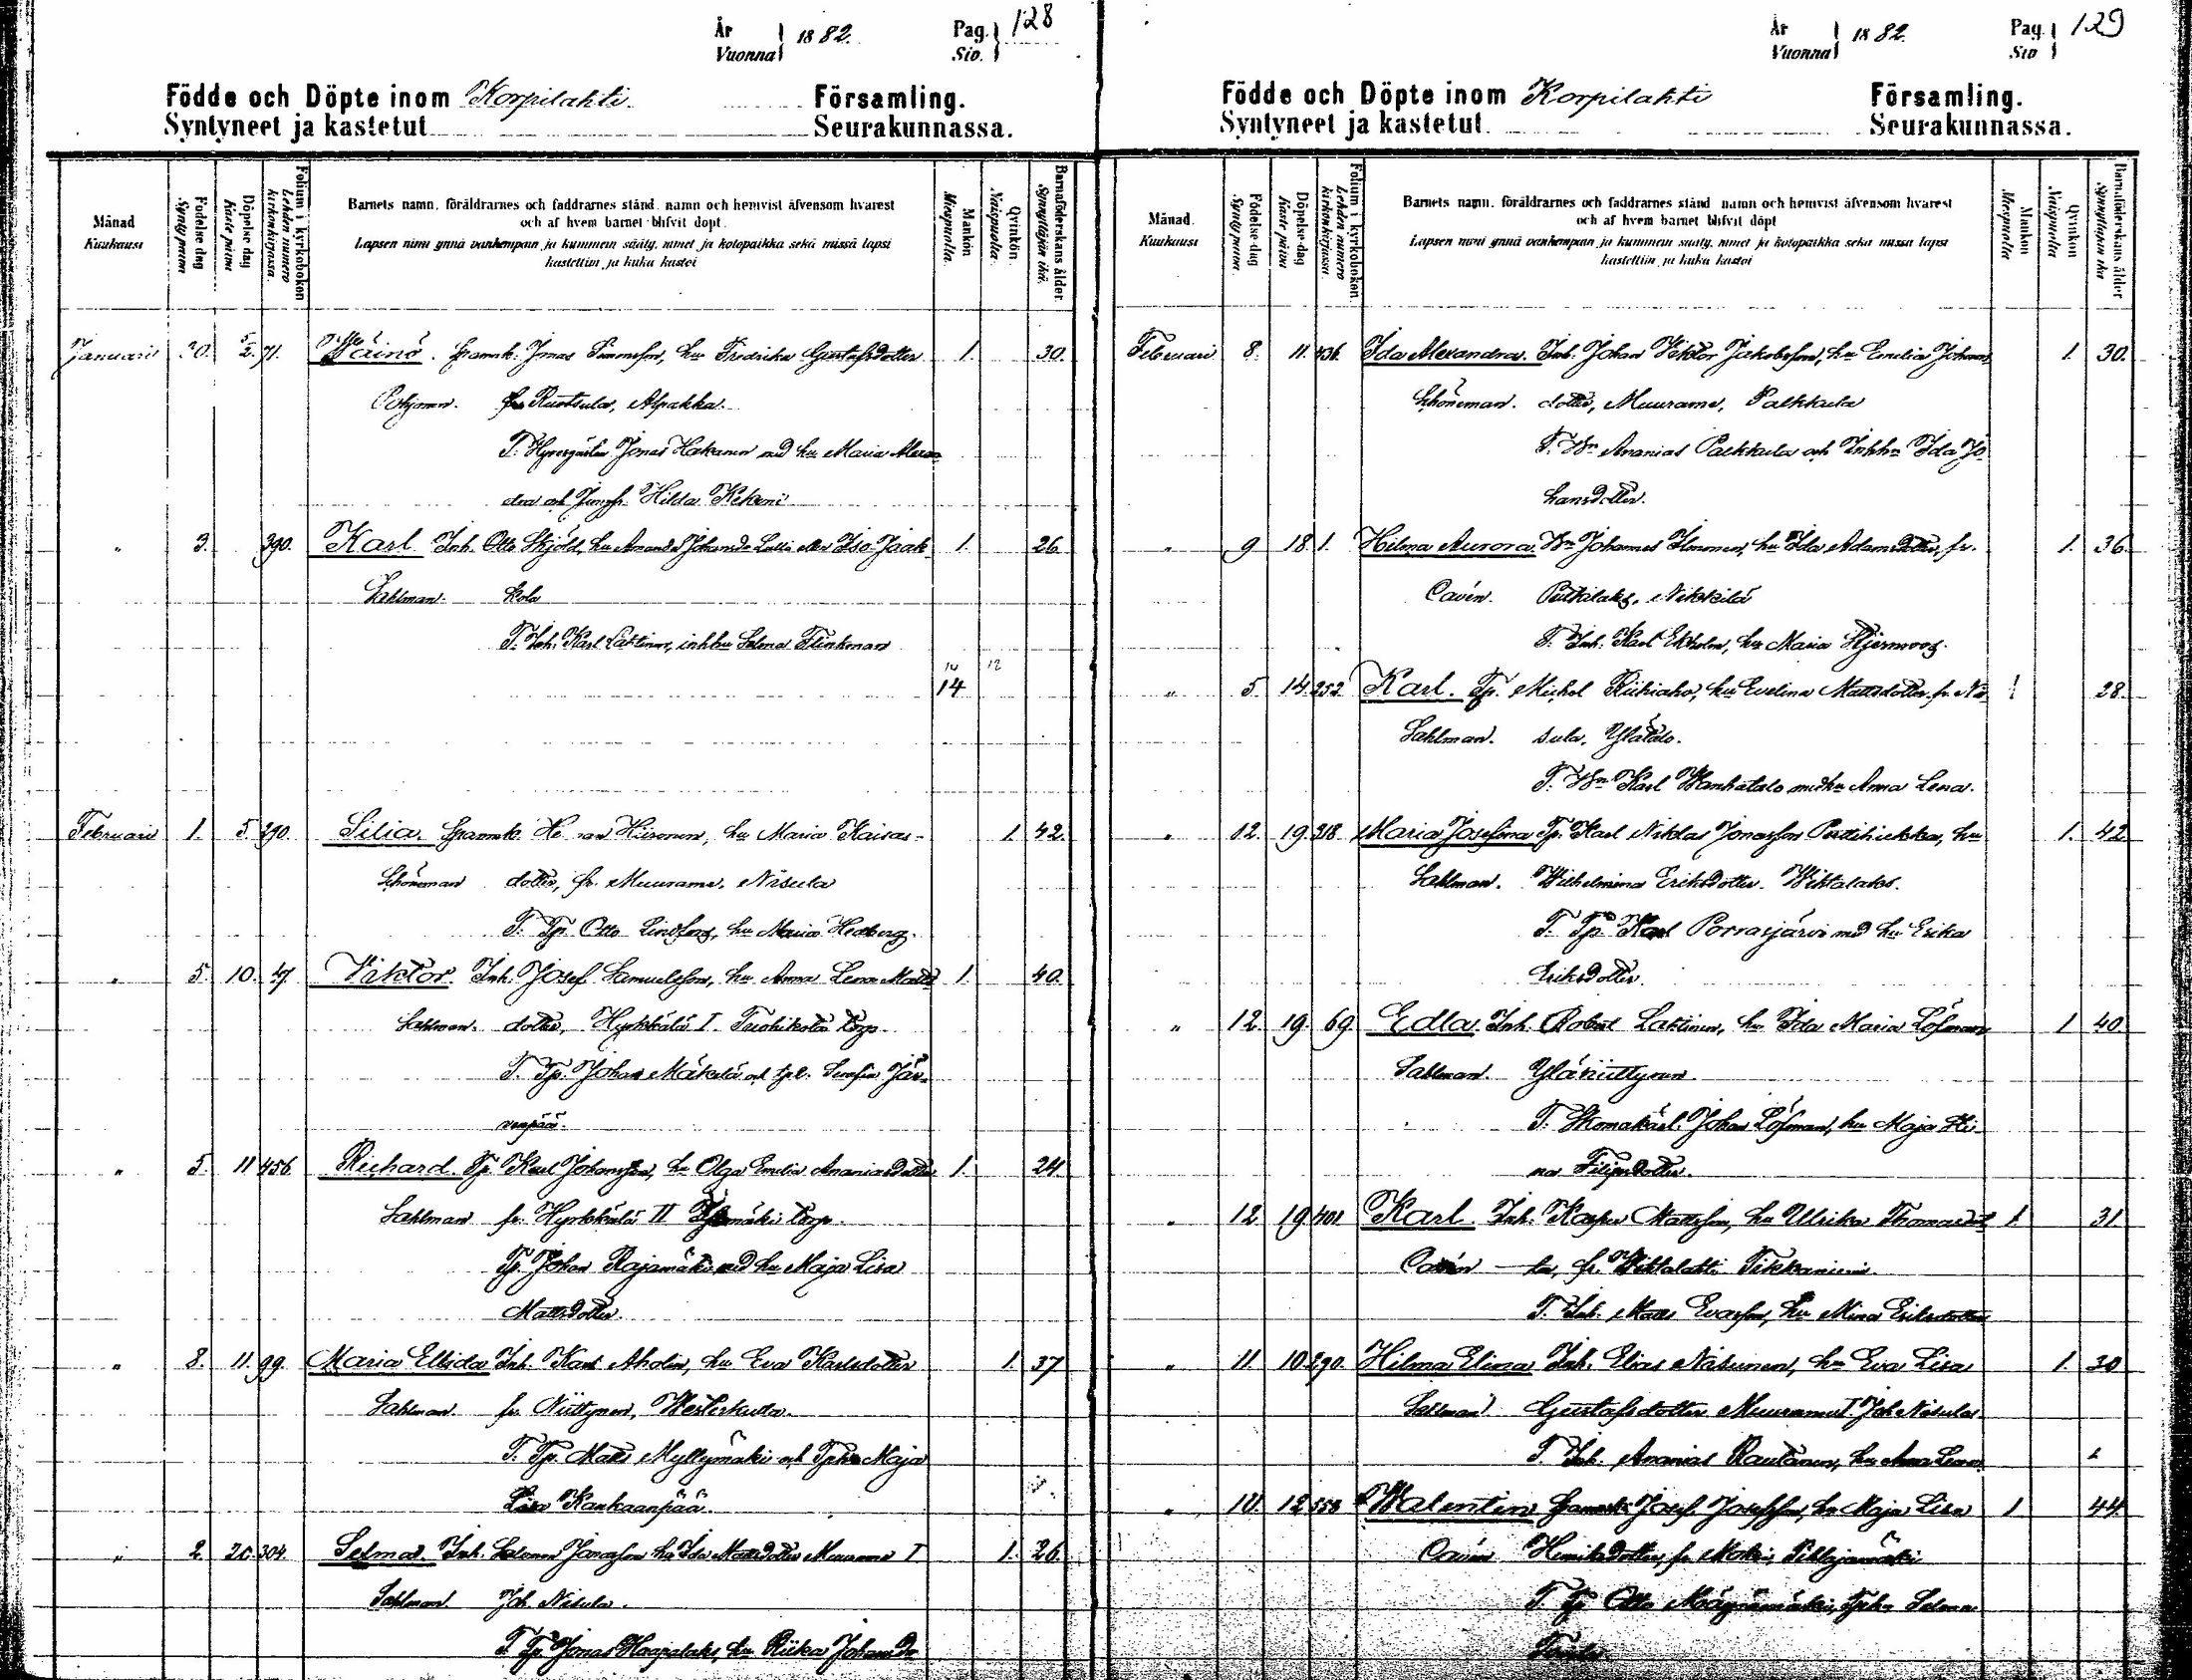 År Vuonna 1882. Pag. Siv. 128
Födde och Döpte inom Korpilahti Församling.
Syntyneet ja kastetut Seurakunnassa.
Månad Kuukausi
Födelse dag Synty päivä
Döpelse dag Kaste päivä
Folium i kyrkoboken Lehden numero kirkonkirjassa.
Barnets namn, föräldrarnes och faddrarnes stånd, namn och hemvist äfvensom hvarest
och af hvem barnet blifvit döpt.
Lapsen nimi ynnä vanhempain ja kummein sääty, nimet ja kotopaikka sekä missä lapsi
kastettiin ja kuka kastoi
Mankön Miespuolia.
Qvinkön Naispuolia.
Barnaföderskans ålder. Synnyttäjän ikä.
Januari 20. 5/2. 71. Wäinö. Jonas Simonsson, hu Fredrika Gustafsdotter 1. 30.
Pohjonen. fr Ruotsula, Alpakka.
T. Jonas Hakanen med hu Maria Alexan
dra och Hilda Kekoni
" 3. 390. Karl Inh. Otto Skjöld, hu Amanda Johansdr Iso-Jaak- 1. 26.
Sahlman. kola
T. Inh. Karl Lahtinen, inhhu Selma Flinkman
10 12
14
Februari 1. 5. 290. Silia. Hiironen, hu Maria Kaisas- 1. 42.
Schöneman dotter, fr. Muurame, Nisula
T. Tp. Otto Lindfors, hu Maria Hedberg.
" 5. 10. 47. Viktor. Inh. Josef Samuelsson, hu Anna Lena Matts 1. 40.
Sahlman. dotter, Hyrkkälä I torp.
T. Tp. Johan Mäkelä och Serafia Jär-
venpää.
" 5. 11 456. Richard. Tp. Karl Johansson, hu Olga Emilia Ananiasdotter 1. 24
Sahlman fr. Hyrkkälä II torp.
Tp. Johan Rajamäki med hu Maja Lisa
Mattsdotter.
" 8. 11. 99. Maria Ellida Inh. Karl Aholin, hu Eva Karlsdotter 1. 37
Sahlman. fr. Niittynen, Westerkulla.
T. Tp. Matts Myllymäki och Tphu Maja
Lisa Kankaanpää.
" 2. 304. Selma. Inh. Salomon Jonasson hu Ida Mattsdotter Muurame I 1. 26.
Sahlman. Joh Nisula.
T. Tp. Jonas Haapalaks, hu Riika Johansdr
År Vuonna 1882. Pag. Siv 129
Födde och Döpte inom Korpilahti Församling.
Syntyneet ja kastetut Seurakunnassa.
Månad. Kuukausi
Födelse-dag Synty päivä.
Döpelse-dag Kaste päivä
Folium i kyrkoboken. Lehden numero kirkonkirjassa.
Barnets namn, föräldrarnes och faddrarnes stånd, namn och hemvist äfvensom hvarest
och af hvem barnet blifvit döpt
Lapsen nimi ynnä vanhempain ja kummein sääty, nimet ja kotopaikka sekä missä lapsi
kastettiin ja kuka kastoi
Mankön Miespuolia
Qvinkön Naispuolia
Barnaföderskans ålder Synnyttäjän ikä
Februari 8. 11. 436. Ida Alexandra. Inh. Johan Viktor Jakobsson, hu Emelia Johans 1. 30.
Schöneman. dotter, Muurame, Palkkula
T. Bn Ananias Palkkula och Inhhu Ida Jo
hansdotter.
" 9 18 1. Hilma Aurora. Bn Johannes Ilmonen, hu Ida Adamsdotter, fr. 1. 36.
Cavén. Putkilaks, Nikkilä
T. Inh. Karl Ekholm, hu Maria
" 5 14 252 Karl. Tp. Michel Riihiaho, hu Evelina Mattsdotter, fr. Ni- 1 28.
Sahlman. sula, Ylätalo.
T. Bn Karl Wanhatalo medhu Anna Lena.
" 12. 19. 318. Maria Josefina Tp. Karl Niklas Jonasson hu 1. 42
Sahlman. Wilhelmina Eriksdotter. Wihtalaks.
T. Tp. Karl Porrasjärvi med hu Erika
Eriksdotter.
" 12. 19. 69. Edla Inh. Robert Lahtinen, hu Ida Maria Löfman 1 40.
Sahlman. Yläniittynen.
T. Johan Löfman, hu Maja Hi-
na Filipsdotter.
" 12. 19 401 Karl. Inh. Kasper Mattsson, hu Ulrika Thomasdot 1. 31.
Cavén ter, fr. Wihtalahti Tikkaniemi.
T. Inh. Matts Evasson, hu Mina Eriksdotter
" 11. 10. 290. Hilma Elina Inh. Elias Näsinen, hu Eva Lisa 1. 30
Sahlman Gustafsdotter Muurame I. Joh Nisula.
T. Inh. Ananias Rautanen, hu Anna Lena
" 10. 12. 358 Walentin Josef Josefsson, hu Maja Lisa 1 44.
Cavén Henriksdotter, fr Moksi, Pihlajamäki
T. Tp. Otto Tphu Selma